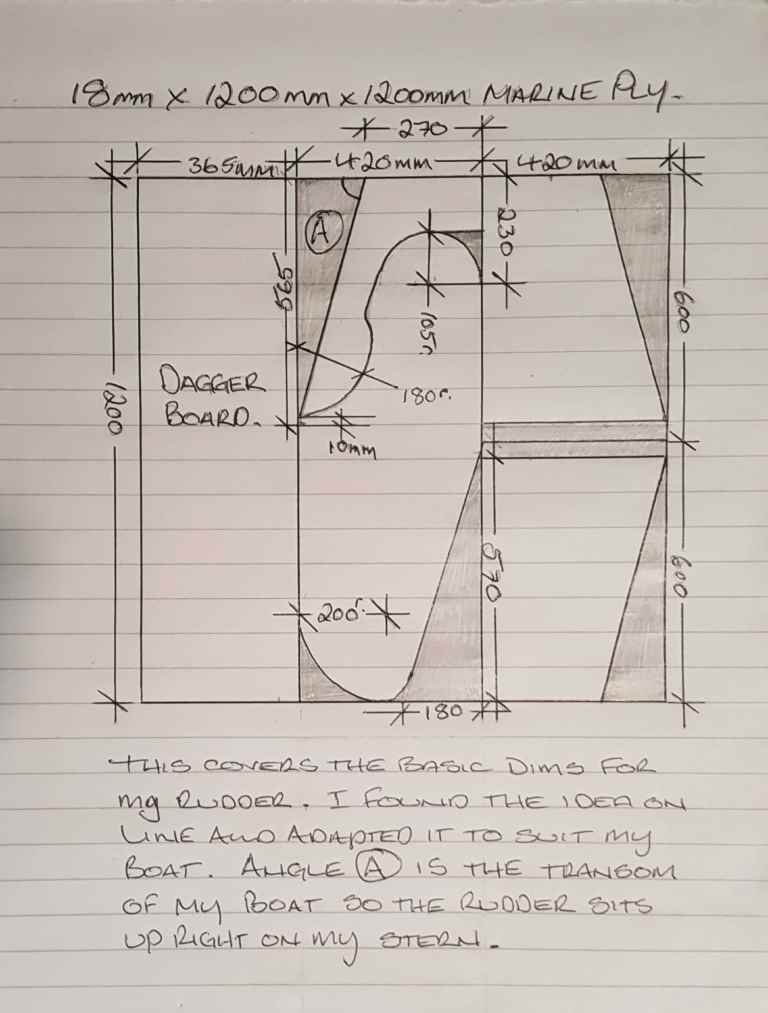 18mm x 1200mm x 1200mm MARINE PLY.
270
365mm 420mm 420mm
A
230
595
105r.
600
1200
DAGGER
BOARD.
180r.
10mm
570
600
200r.
180
THIS COVERS THE BASIC DIMS FOR
my RUDDER. I FOUND THE IDEA ON
LINE AND ADAPTED IT TO SUIT MY
BOAT. ANGLE A IS THE TRANSOM
OF MY BOAT SO THE RUDDER SITS
UP RIGHT ON MY STERN.